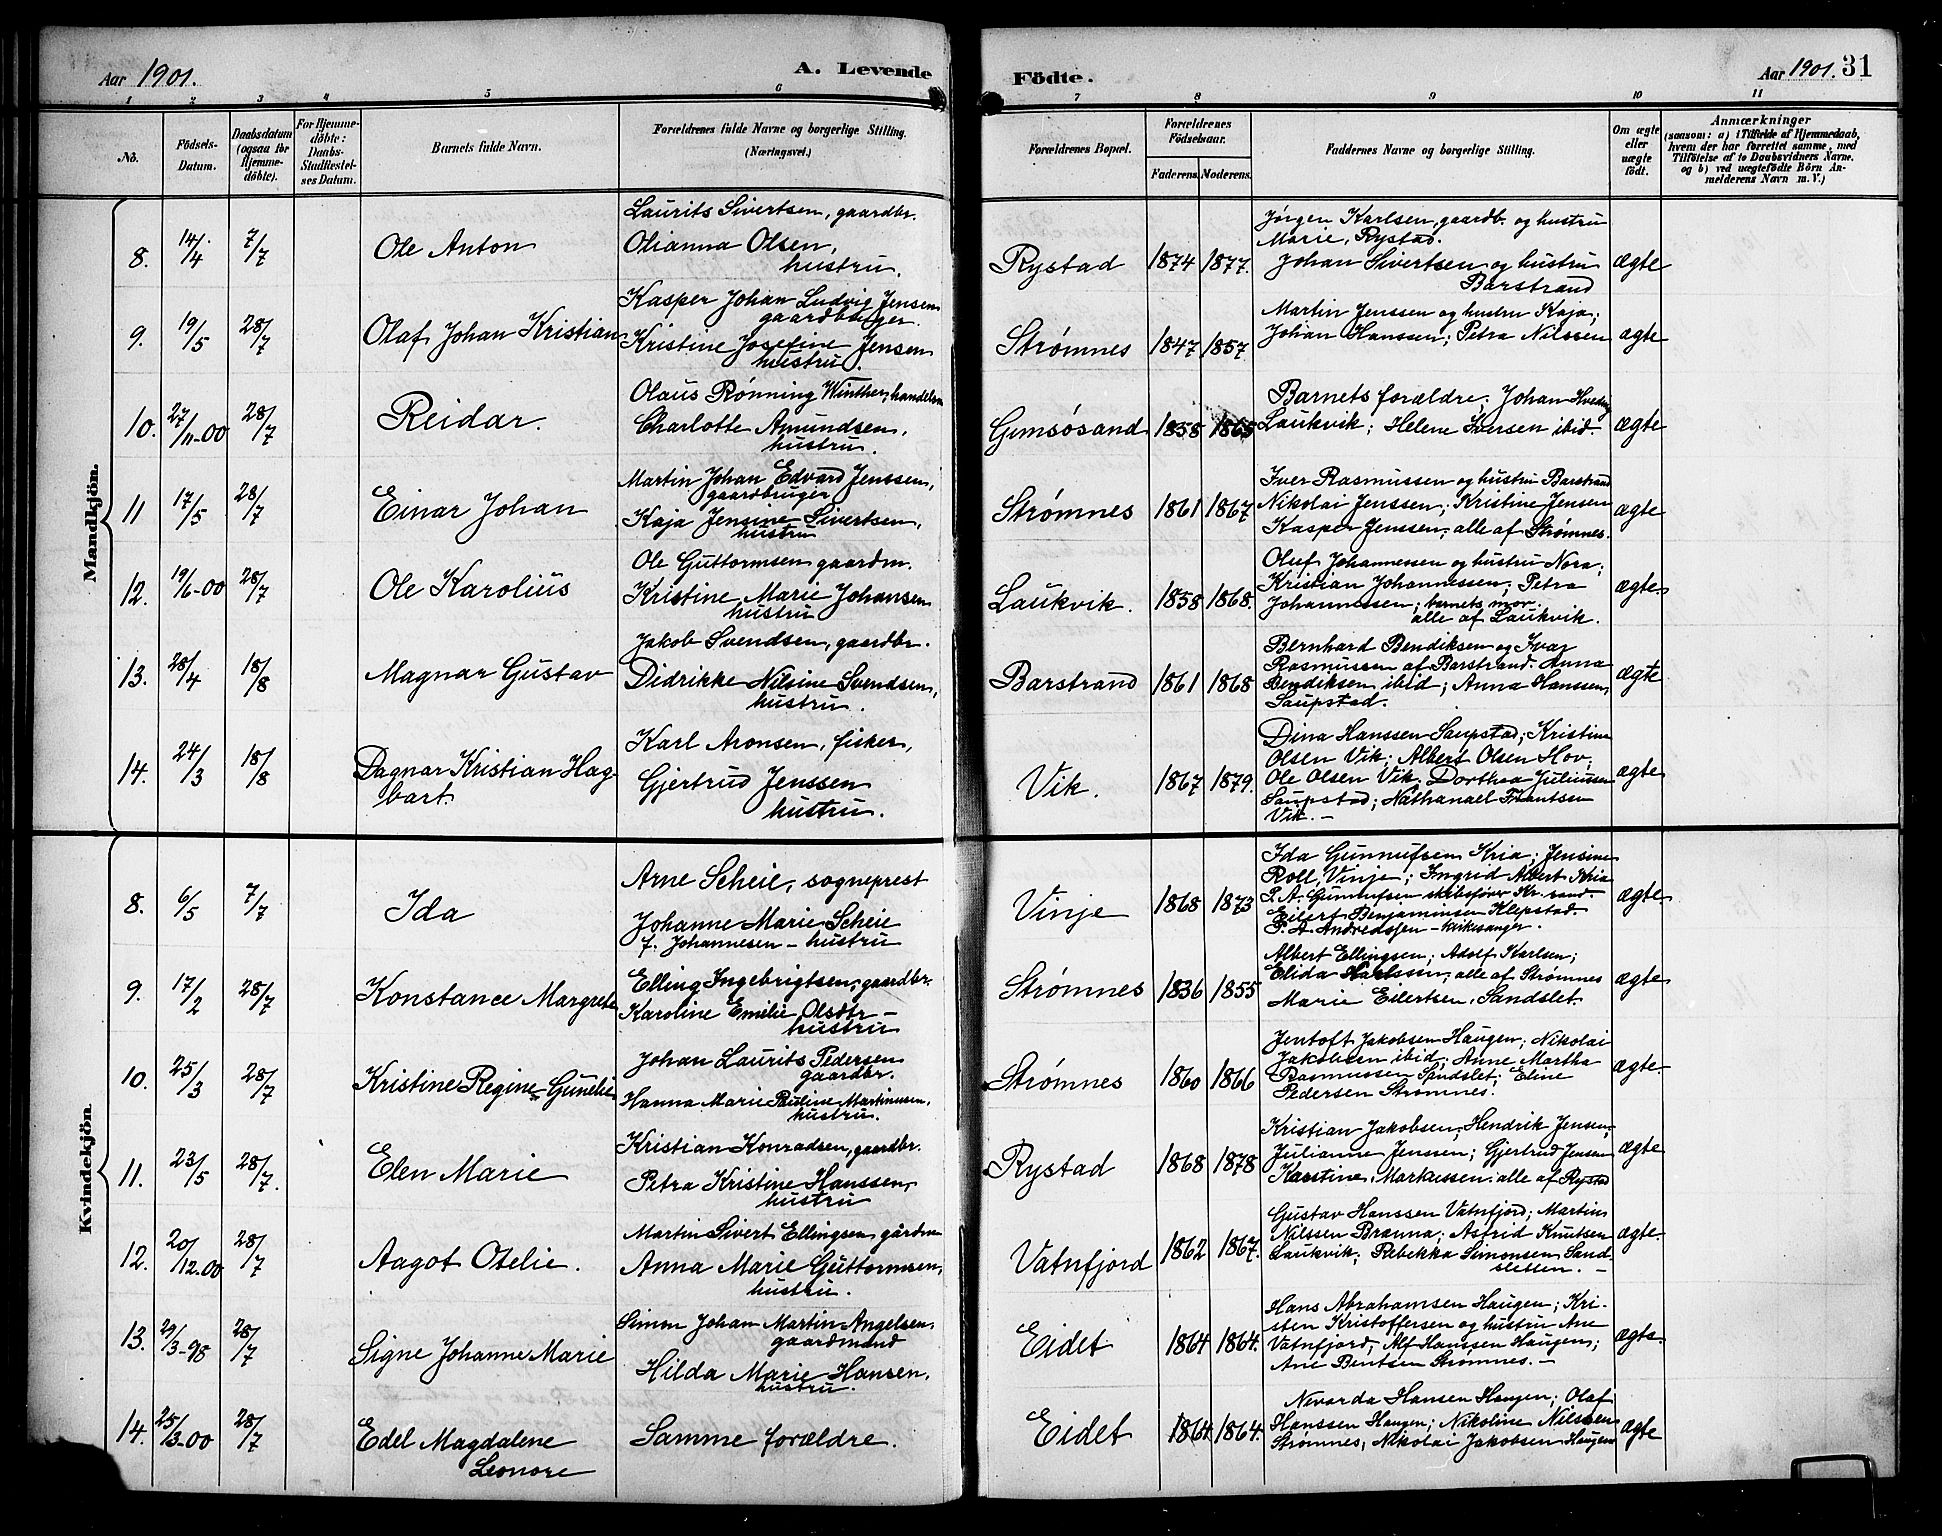 Aar 1901.
A. Levende Födte.
Aar 1901. 31
1 2 3 4 5 6 7 8 9 10 11
No.
Födsels-Datum.
Daabsdatum (ogsaa for Hjemmedöbte).
For Hjemmedöbte: Daabs-Stadfæstelses Datum.
Barnets fulde Navn.
Forældrenes fulde Navne og borgerlige Stilling. (Næringsvei.)
Forældrenes Bopæl.
Forældrenes Födselsaar.
Faderens. Moderens.
Faddernes Navne og borgerlige Stilling.
Om ægte eller uægte födt.
Anmærkninger
(saasom: a) i Tilfælde af Hjemmedaab, hvem der har forrettet samme, med Tilföielse af to Daabsvidners Navne, og b) ved uægtefödte Börn Anmelderens Navn m. V.)
Mandkjön.
8. 14/4 7/7 Ole Anton
Laurits Sivertsen, gaardbr.
Olianna Olsen,
hustru.
Rystad 1874 1877.
Jørgen Karlsen, gaardb. og hustru
Marie, Rystad.
Johan Sivertsen og hustru
Barstrand
ægte
9. 19/5 28/7 Olaf Johan Kristian
Kasper Johan Ludvig Jensen
gaardbruger.
Kristine Josefine Jensen
hustru.
Strømnes 1847 1857
Martin Jenssen og hustru Kaja;
Johan Hanssen; Petra Nilssen
ægte
10. 27/11-00 28/7 Reidar.
Olaus Rønning Winther, handelsm
Charlotte Amundsen,
hustru.
Gimsøsand 1858 1865
Barnets forældre; Johan
Laukvik; Helene Iversen ibid.
ægte
11 17/5 28/7 Einar Johan
Martin Johan Edvard Jenssen,
gaardbruger
Kaja Jensine Sivertsen,
hustru
Strømnes 1861 1867
Iver Rasmussen og hustru Barstrand
Nikolai Jenssen; Kristine Jensen
Kasper Jenssen, alle af Strømnes.
ægte
12. 19/6-00 28/7 Ole Karolius
Ole Guttormsen gaardm.
Kristine Marie Johansen
hustru
Laukvik. 1858 1868.
Oluf Johannessen og hustru Nora;
Kristian Johannessen; Petra
Johannessen; barnets mor.
alle af Laukvik.
ægte
13. 28/4 18/8 Magnar Gustav
Jakob Svendsen, gaardbr.
Didrikke Nilsine Svendsen,
hustru.
Barstrand 1861 1868
Bernhard Bendiksen og Ivar
Rasmussen af Barstrand. Anna
Bendiksen ibid; Anna Hanssen,
Saupstad.
ægte
14. 24/3 18/8 Dagnar Kristian Hag-
bart.
Karl Aronsen, fisker,
Gjertrud Jenssen
hustru.
Vik. 1867 1879.
Dina Hanssen Saupstad; Kristine
Olsen Vik; Albert Olsen Hov;
Ole Olsen Vik. Dorthea Juliussen
Saupstad; Nathanael Frantsen
Vik. –
ægte
Kvindekjön.
8. 6/5 7/7 Ida
Arne Scheie, sogneprest
Johanne Marie Scheie
f. Johannesen – hustru
Vinje 1868 1873
Ida Gunnufsen Kria; Jensine
Roll, Vinje; Ingrid Albert Kria
P. A. Gunnufsen skibsfører Kr.sand.
Eilert Benjaminsen Klepstad.
P. A. Andreassen – kirkesanger.
ægte
9. 17/2 28/7 Konstance Margrete
Elling Ingebrigtsen, gaardbr.
Karoline Emelie Olsdtr –
hustru
Strømnes 1836 1855
Albert Ellingsen; Adolf Karlsen;
Elida, alle af Strømnes
Marie Eilertsen, Sandslet
ægte
10. 25/3 28/7 Kristine Regine Gunelie
Johan Laurits Pedersen
gaardbr.
Hanna Marie Pauline Martinusen,
hustru.
Strømnes 1860 1866
Jentoft Jakobsen Haugen; Nikolai
Jakobsen ibid; Anne Martha
Rasmussen Sandslet; Eline
Pedersen Strømnes.
ægte.
11. 23/5 28/7. Elen Marie
Kristian Konradsen, gaardbr.
Petra Kristine Hanssen,
hustru
Rystad 1868 1878
Kristian Jakobsen; Hendrik Jensen;
Julianne Jenssen; Gjertrud Jensen
Karstine Markussen; alle af Rystad
ægte
12. 20/12-00 28/7 Aagot Otelie.
Martin Sivert Ellingsen gårdm
Anna Marie Guttormsen,
hustru.
Vatnfjord 1862 1867.
Gustav Hanssen Vatnfjord; Martin
Nilssen Brenna; Astrid Knutsen
Laukvik; Rebekka Simonsen Sand-
sletten. –
ægte.
13. 29/3-98 28/7 Signe Johanne Marie
Simon Johan Martin Angelsen.
gaardmand
Hilda Marie Hansen,
hustru.
Eidet 1864 1864.
Hans Abrahamsen Haugen; Kri-
sten Kristoffersen og hustru Ane
Vatnfjord; Alf Hanssen Haugen;
Ane Bentsen Strømnes. –
ægte.
14. 25/3-00 28/7 Edel Magdalene
Leonore
Samme forældre.
Eidet 1864 1864.
Nevarda Hansen Haugen; Olaf
Hanssen Haugen; Nikoline Nilssen
Strømnes; Nikolai Jakobsen Haugen
ægte